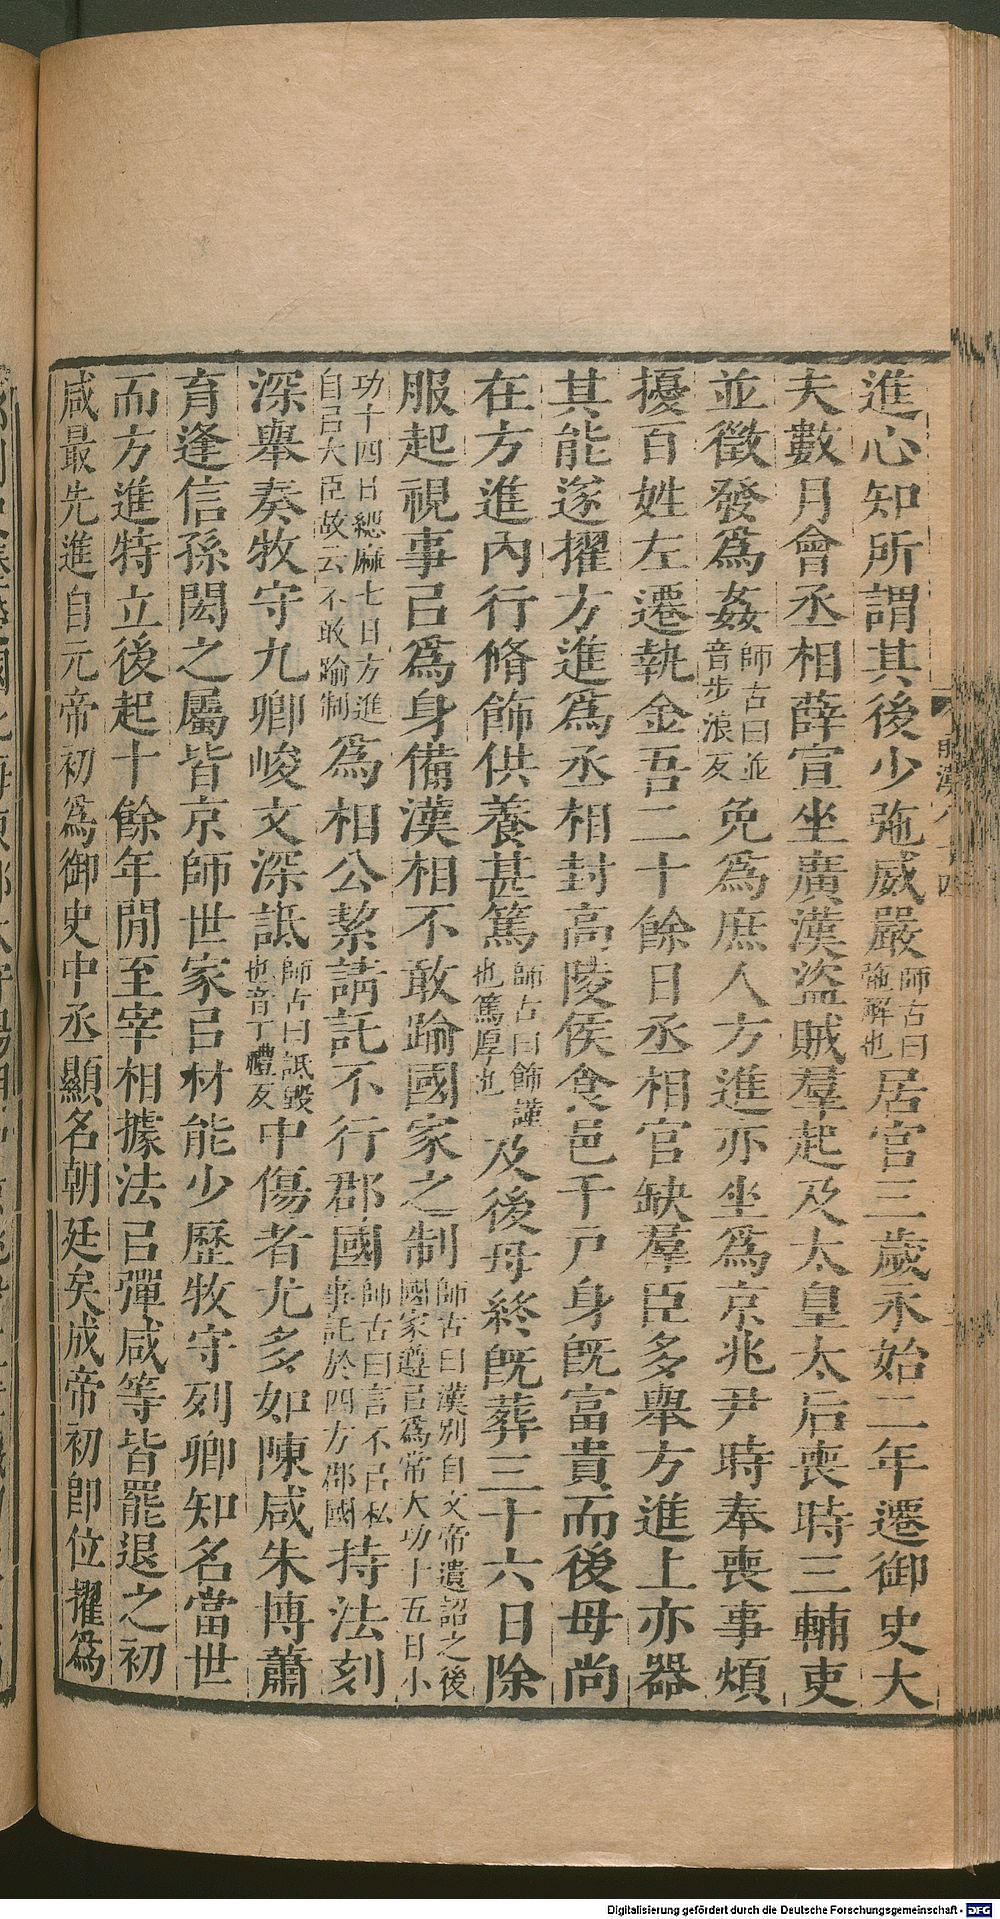 進心知所謂其後少㢮威嚴師古曰㢮解也居官三歲永始二年遷御史大
夫數月會丞相薛宣坐廣漢盜賊羣起及太皇太后喪時三輔吏
並徵發爲姦師古曰並音步浪反免爲庶人方進亦坐爲京兆尹時奉喪事煩
擾百姓左遷執金吾二十餘日丞相官缺羣臣多舉方進上亦器
其能遂擢方進爲丞相封高陵侯食邑千戸身旣富貴而後母尚
在方進內行脩飾供養甚篤師古曰飾謹也篤厚也及後母終旣葬三十六日除
服起視事㠯爲身備漢相不敢踰國家之制師古曰漢制自文帝遺詔之後國家遵㠯爲常大功十五日小
功十四日緦麻七日方進自㠯大臣故云不敢踰制爲相公絜請託不行郡國師古曰言不㠯私事託於四方郡國持法刻
深舉奏牧守九卿峻文深詆師古曰詆毀也音丁禮反中傷者尤多如陳咸朱博蕭
育逢信孫閎之屬皆京師世家㠯材能少歷牧守列卿知名當世
而方進特立後起十餘年閒至宰相據法㠯彈咸等皆罷退之初
咸最先進自元帝初爲御史中丞顯名朝廷矣成帝初卽位擢爲
Digitalisierung gefördert durch die Deutsche Forschungsgemeinschaft - DFG